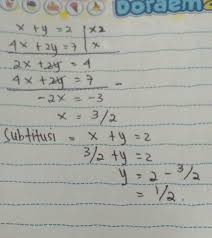 Doraem
x + y = 2 | x2
4x + 2y = 7 | x
2x + 2y = 4
4x + 2y = 7 -
-2x = -3
x = 3/2
Subtitusi = x + y = 2
3/2 + y = 2
y = 2 - 3/2
= 1/2.